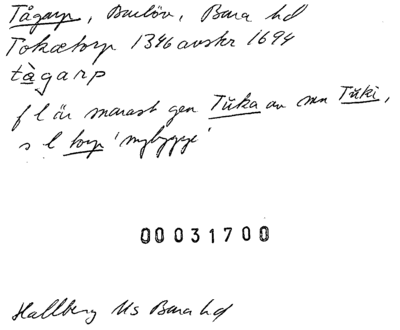 Tågarp, Burlöv, Bara hd
Tokætorp 1346 avskr 1694
tàgarp
f l är snarast gen Tuka av mn Tuki,
s l torp 'nybygge'
00031700
Hallberg Ms Bara hd